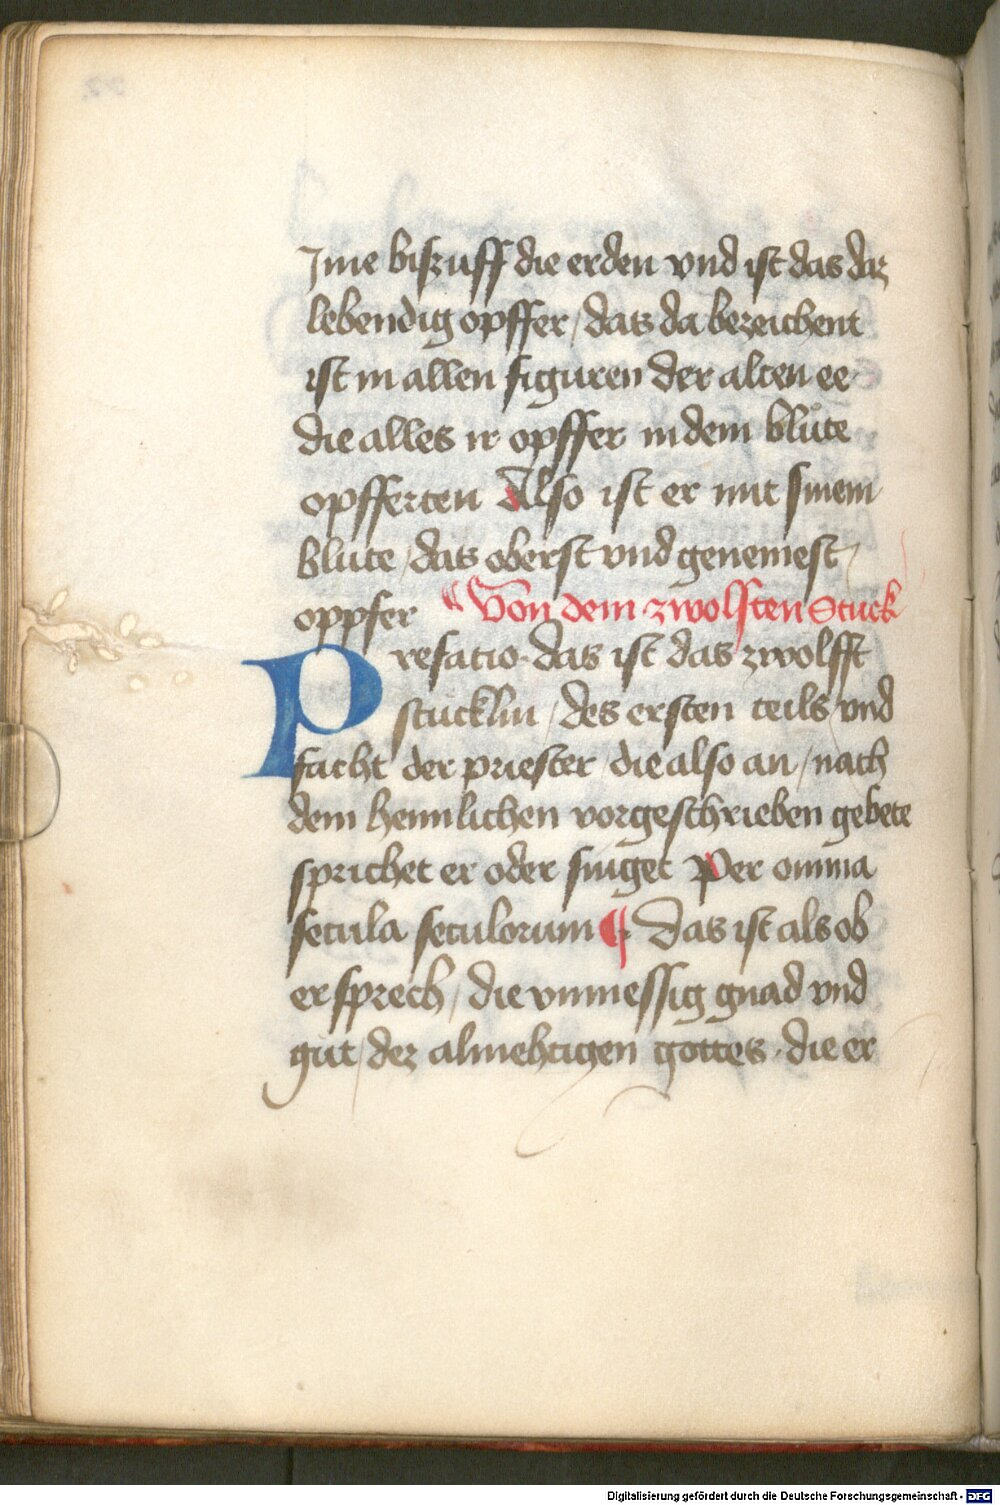 Jme biſz uff die erden vnd ist das daz
lebendig opffer / das da bezeichent
ist in allen figuren der alten ee
die alles ir opffer in dem blůte
opfferten Also ist er mit sinem
blute / das oberst vnd genemest
oppfer ¶ Von dem zwolfften Stuck
Prefatio · das ist das zwolfft
stucklin / des ersten teils / vnd
facht der priester / die also an / nach
dem heimlichen vorgeschrieben gebete
sprichet er oder singet Per omnia
secula seculorum ¶ Das ist als ob
er sprech / die vnmessig gnad vnd
gut / dez almehtigen gottes · die er
Digitalisierung gefördert durch die Deutsche Forschungsgemeinschaft - DFG